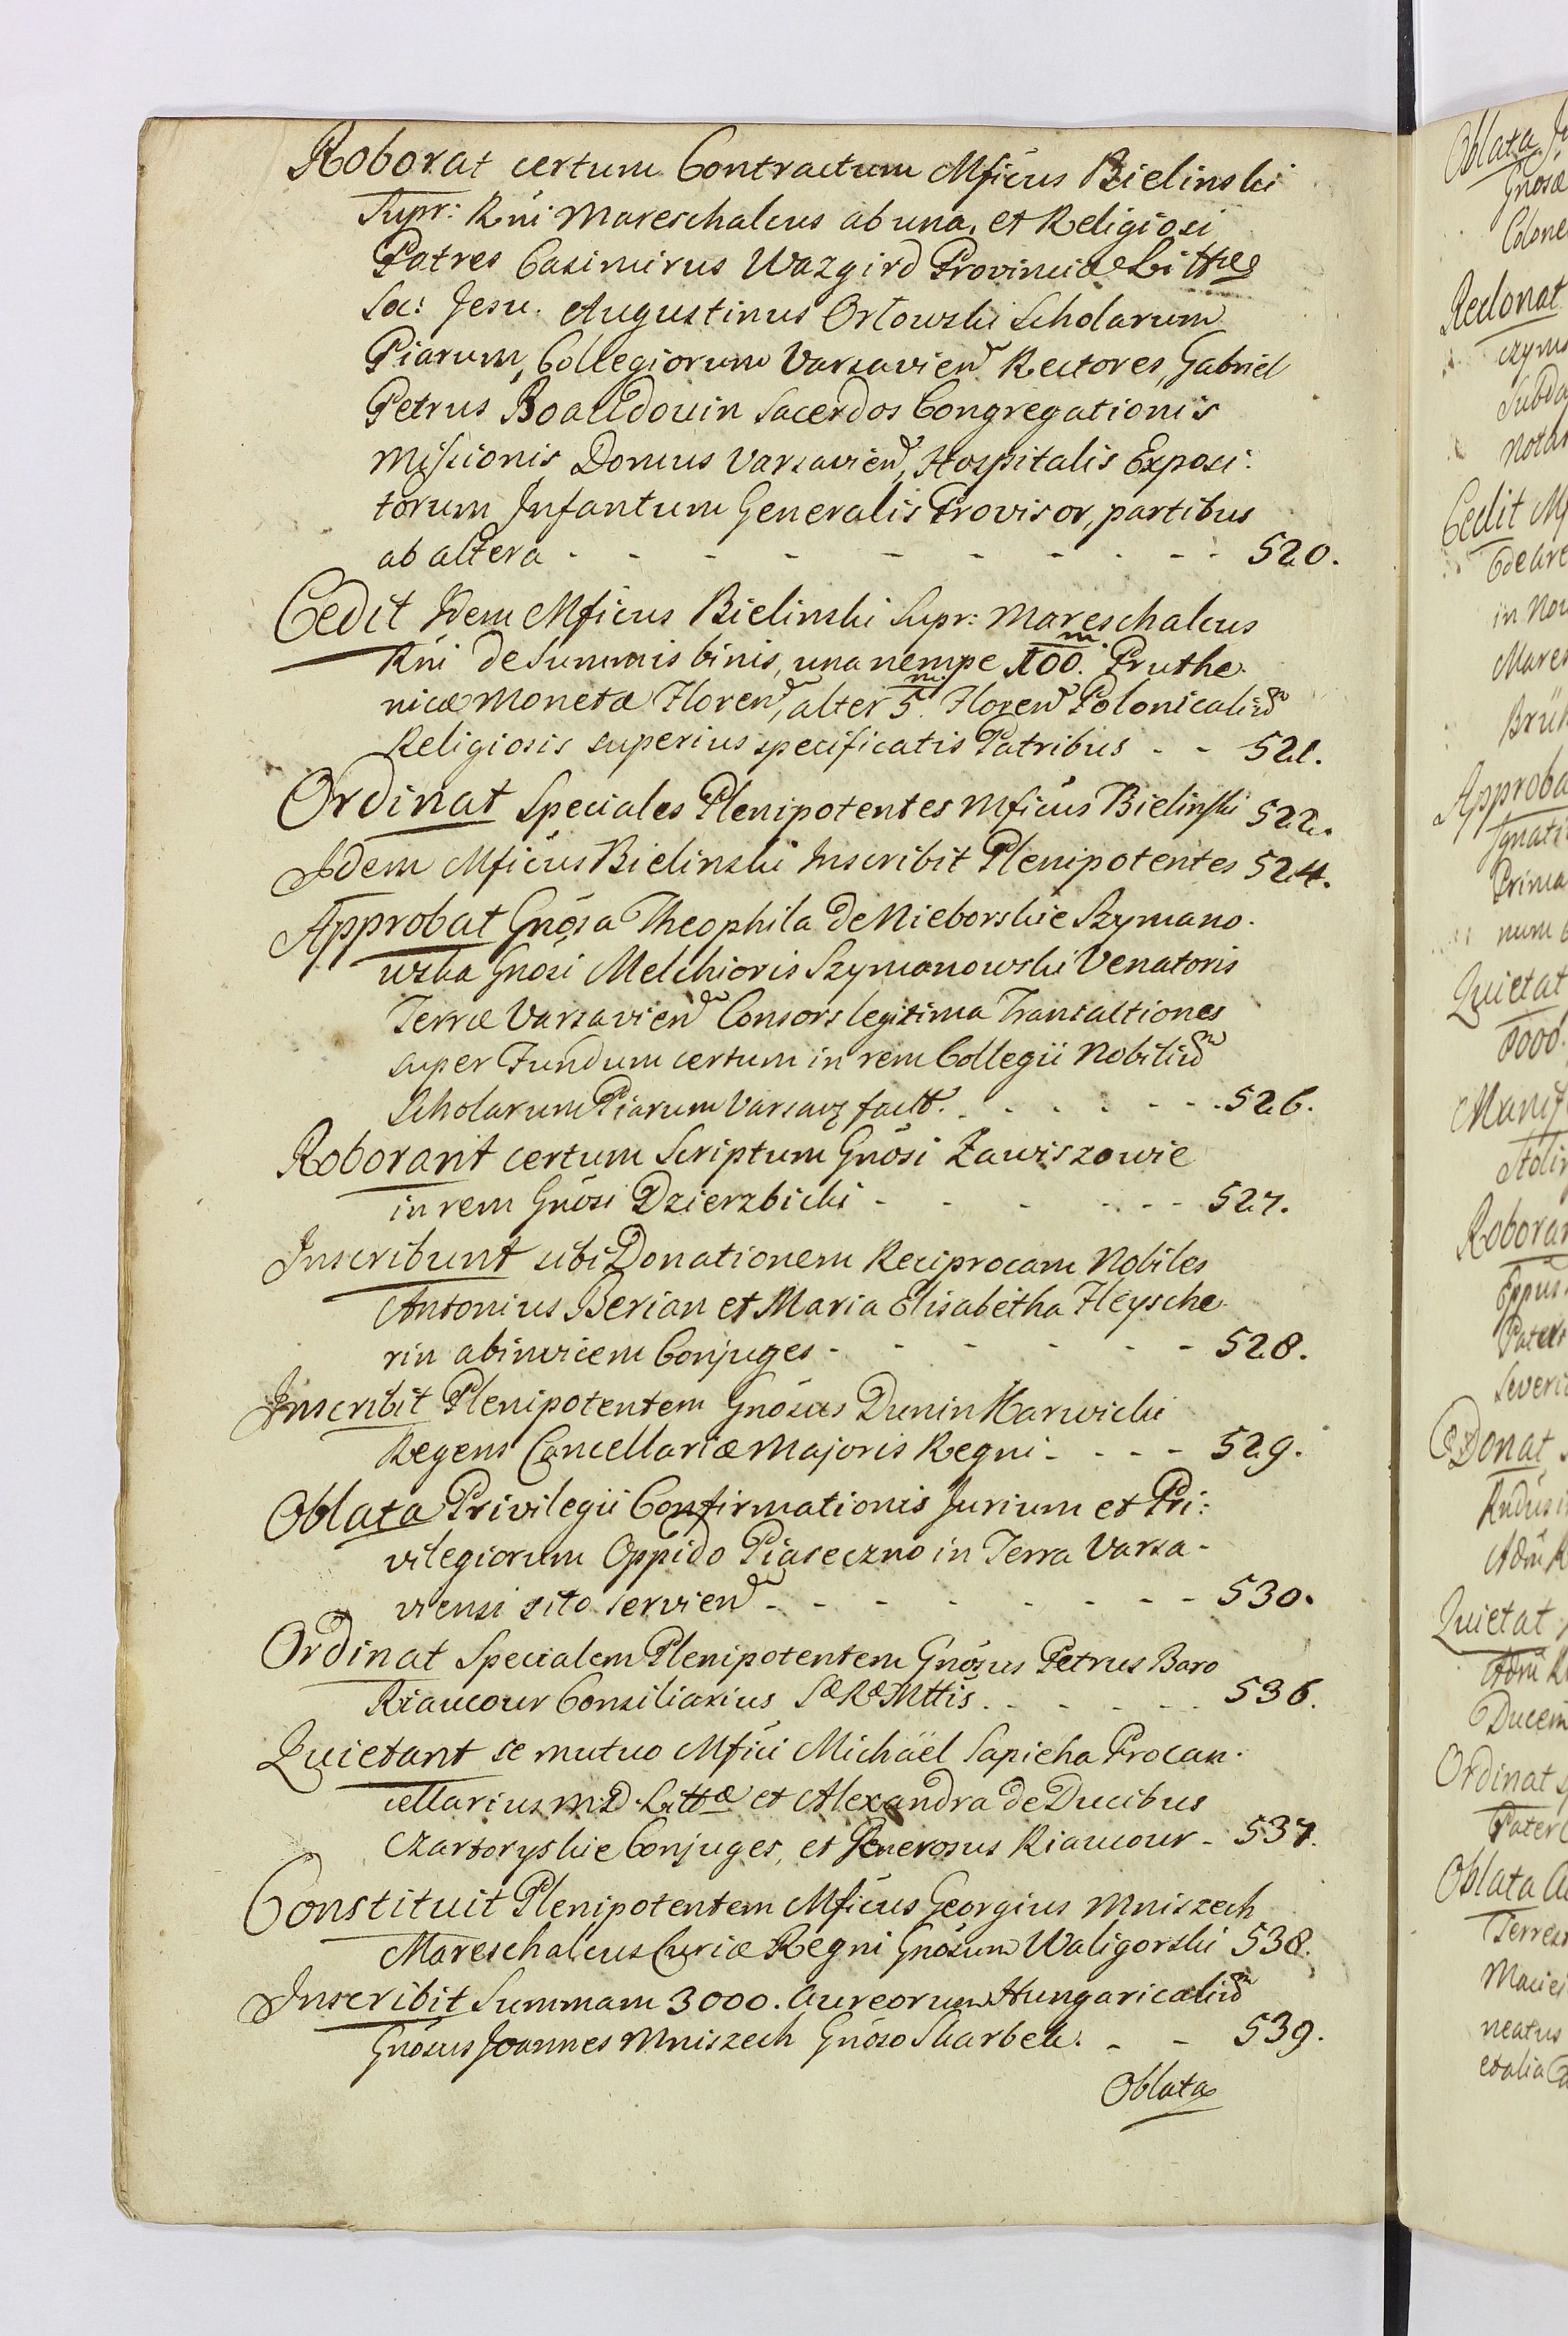 Roborat certum Contractum Mficus Bielinski
Supr: Rni Mareschalcus ab una, et Religiosi
Patres Casimirus Wazgird Provinciæ Littæ
Soc: Jesu. Augustinus Orłowski Scholarum
Piarum, Collegiorum Varsavien Rectores, Gabriel
Petrus Boaudouin Sacerdos Congregationis
Missionis Domus Varsavien, Hospitalis Exposi:
torum Infantum Generalis Provisor, partibus
ab altera - - - - - - - - - - 520.
Cedit Idem Mficus Bielinski Supr: Mareschalcus
Rni de Summis binis, una nempe 100.m Pruthe
nicæ Monetæ Floren, alter 5.m Floren Polonicaliū
Religiosis superius specificatis Patribus - - 521.
Ordinat Speciales Plenipotentes Mficus Bielinski 522.
Idem Mficus Bielinski Inscribit Plenipotentes 524.
Approbat Gnosa Theophila de Nieborskie Szymano-
wska Gnosi Melchioris Szymanowski Venatoris
Terræ Varsavien Consors legitima Transactiones
super Fundum certum in rem Collegii Nobiliū
Scholarum Piarum Varsav factt. - - - - - - 526.
Roborant certum Scriptum Gnosi Zawiszowie
in rem Gnosi Dzierzbicki - - - - - - 527.
Inscribunt sibi Donationem Reciprocam Nobiles
Antonius Berian et Maria Elisabetha Fleysche-
rin abinvicem Conjuges - - - - - - 528.
Inscribit Plenipotentem Gnosus Dunin Karwicki
Regens Cancellariæ Majoris Regni - - - - 529.
Oblata Privilegii Confirmationis Jurium et Pri:
vilegiorum Oppido Piaseczno in Terra Varsa-
viensi sito servien - - - - - - - - 530.
Ordinat Specialem Plenipotentem Gnosus Petrus Baro
Riaucour Consiliarius Sæ Ræ Mttis - - - - - - 536.
Quietant se mutuo Mfici Michaël Sapieha Procan-
cellarius M D Littæ et Alexandra de Ducibus
Czartoryskie Conjuges, et Generosus Riaucour - 537.
Constituit Plenipotentem Mficus Georgius Mniszech
Mareschalcus Curiæ Regni Gnosum Waligorski 538.
Inscribit Summam 3000. Aureorum Hungaricaliū
Gnosus Joannes Mniszech Gnoso Skarbek. - - 539.
Oblata
Oblata
Gnosæ
Colone
Redonat
Cedit
in Nov
Mares
Brüh
Approba
Ignati
Prima
num
Quietat
8000.
Manif
Roborant
Severi
Donat
Quietat
Ducem
Ordinat
Pater
Oblata
Terres
neatus
et alia